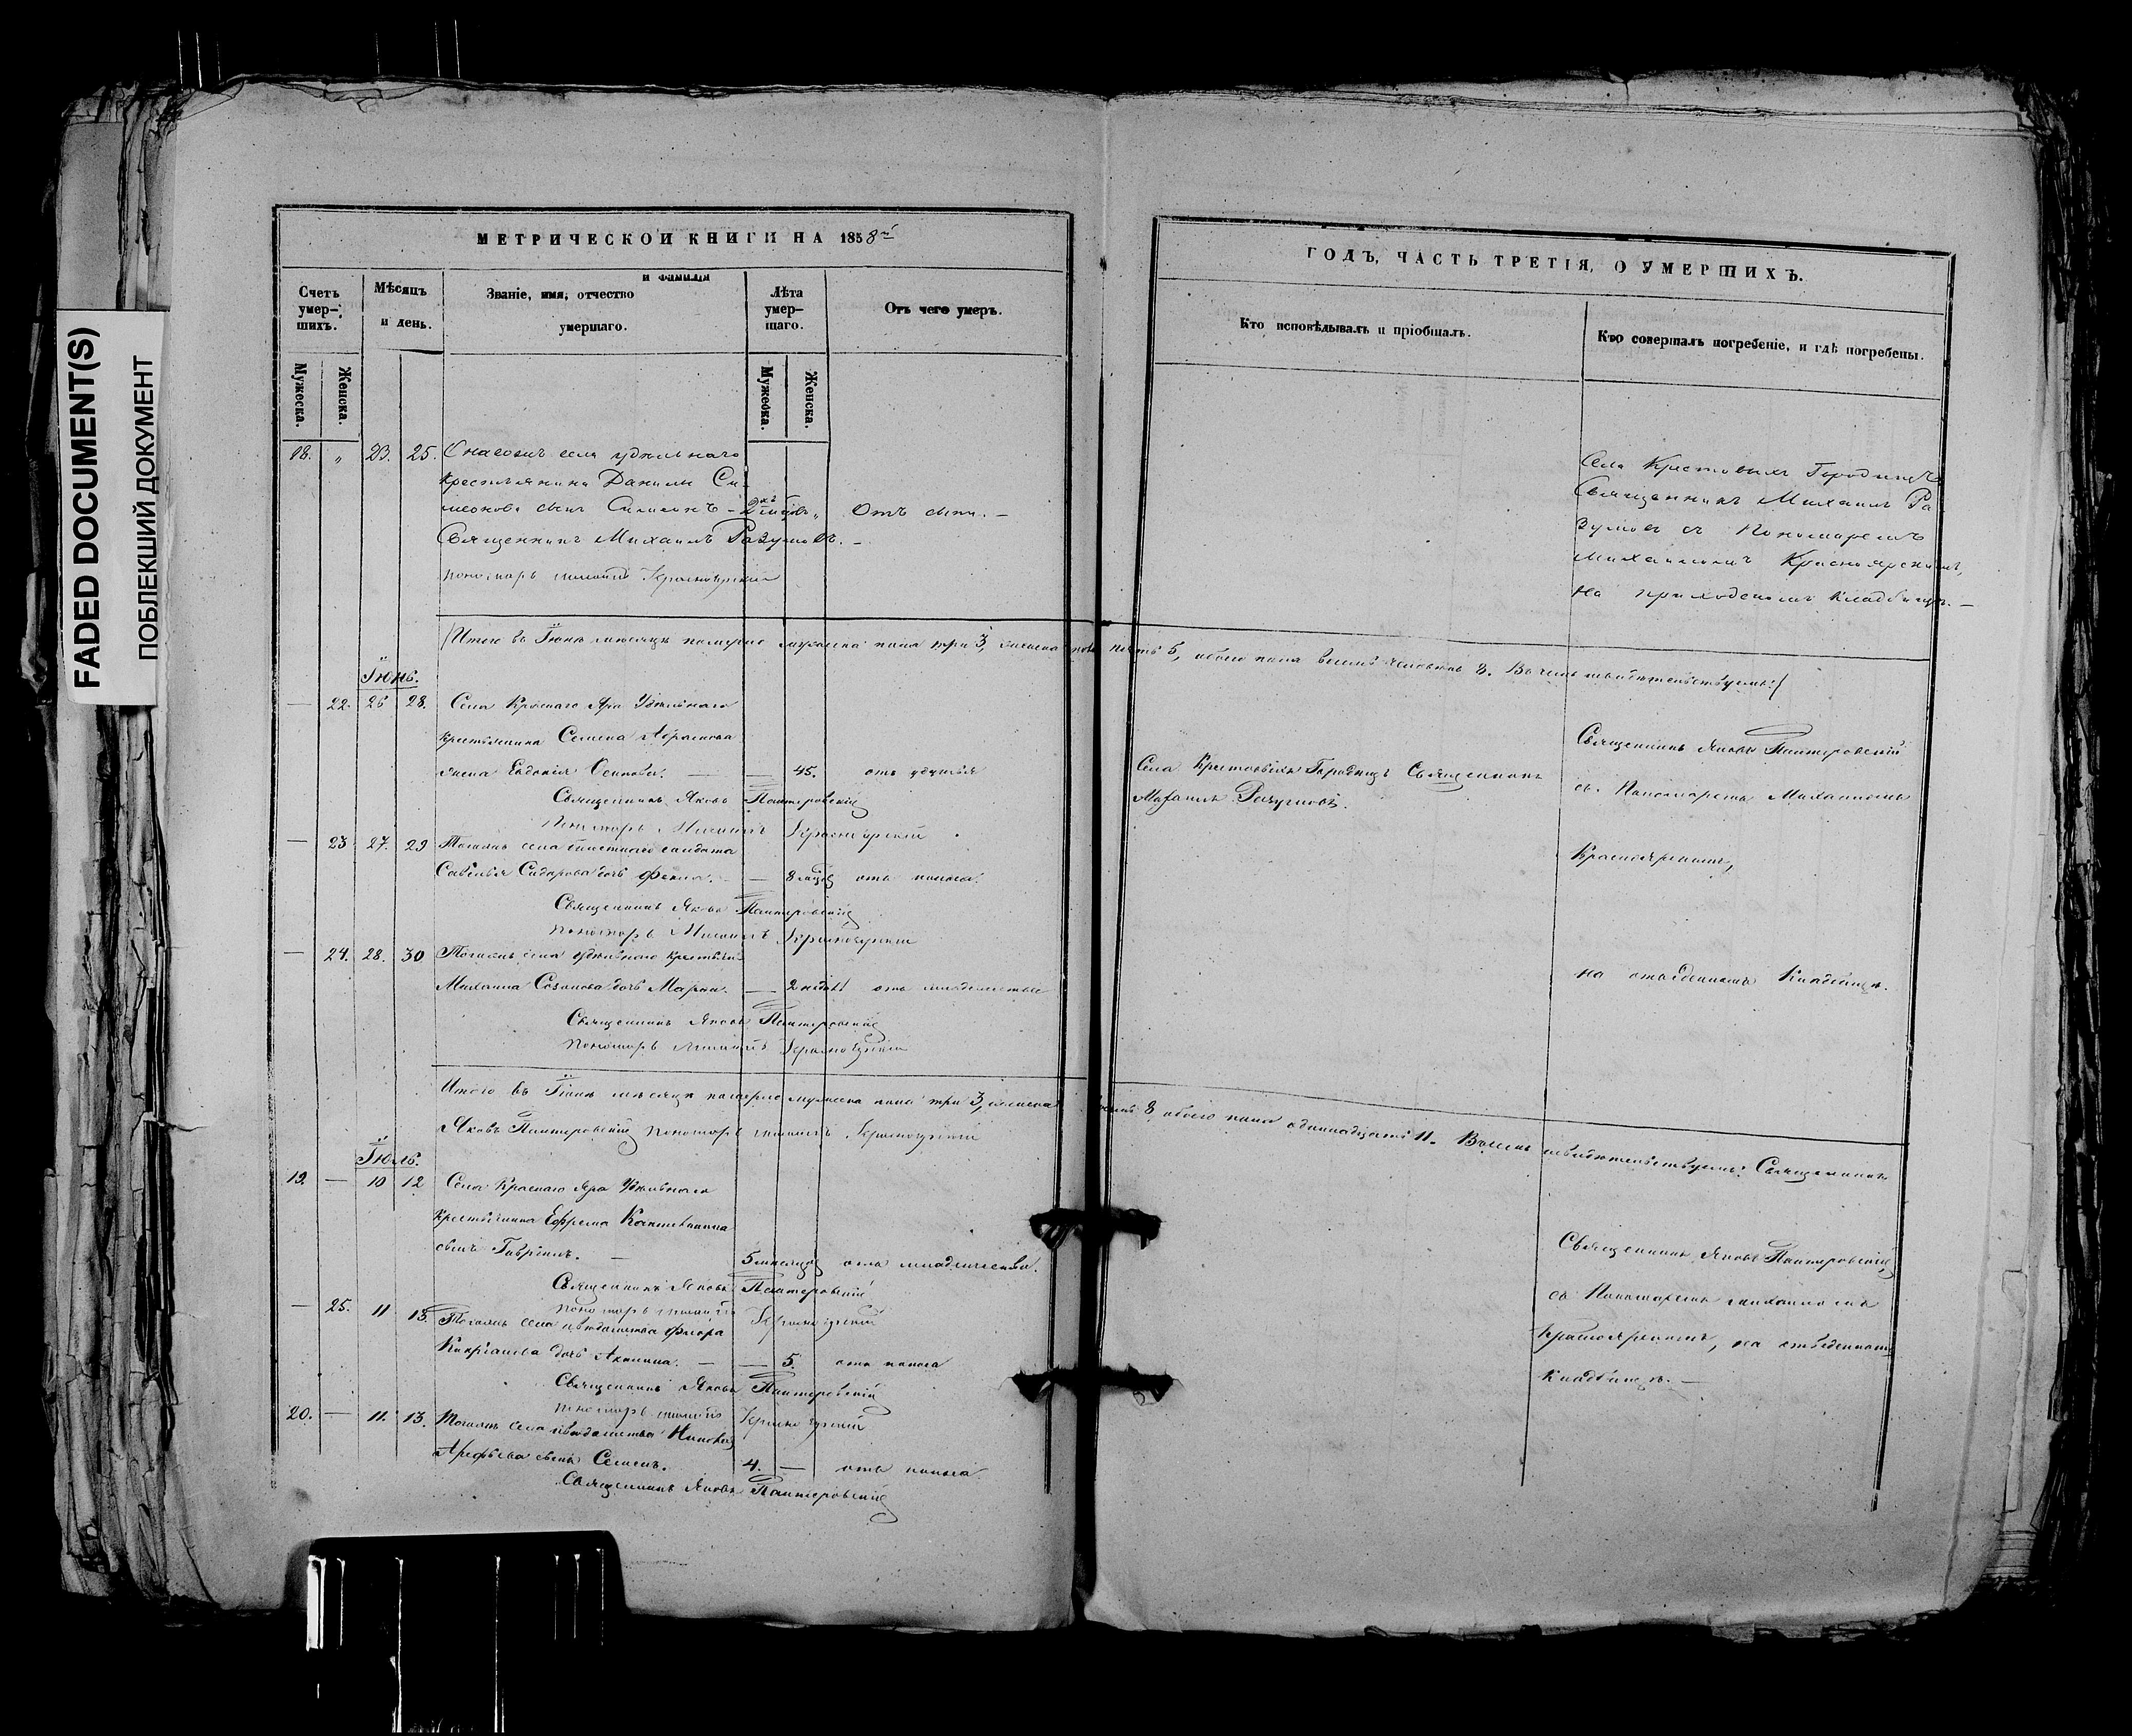 FADED DOCUMENT(S)
ПОБЛЕКШИЙ ДОКУМЕНТ
МЕТРИЧЕСКОЙ КНИГИ НА 1858й
Счетъ умершихъ.
Мѣсяцъ и день.
Званіе, имя, отчество и фамилія умершаго.
Лѣта умершаго.
Отъ чего умеръ.
Мужеска.
Женска.
Мужеска.
Женска.
18. " 23. 25. села удѣльнаго
крестьянина Данилы Си-
меонова сынъ Симеонъ - 2хъ " Отъ
Священникъ Михаилъ Разумовъ. -
Пономарь Красноярскій
Итого въ Іюнѣ мѣсяцѣ померло мужеска пола три 3, женска пола пять 5, обоего пола восемь человѣкъ 8. Въ чемъ свидѣтельствуемъ:
Іюнь.
— 22. 26 28. Села Краснаго Яра Удѣльнаго
крестьянина Семена Абрамова
жена Евдокія Осипова. — — 45. отъ удушья
Священникъ Яковъ Пантеровскій
Пономарь Михаилъ Красноярскій
— 23 27. 29 Тогожъ села билетнаго солдата
Савелья Сидорова дочь Фекла. — — 8 мѣсяц отъ поноса.
Священникъ Яковъ Пантеровскій
Пономарь Михаилъ Красноярскій
— 24. 28. 30 Тогожъ села удѣльнаго крестьян
Михаила Созонова дочь Марья. — 2 недѣл отъ
Священникъ Яковъ Пантеровскій
Пономарь Михаилъ Красноярскій
Итого въ Іюнѣ мѣсяцѣ померло мужеска пола три 3, женска восемь 8 обоего пола одиннадцать 11. Въ чемъ свидѣтельствуемъ: Священникъ
Яковъ Пантеровскій Пономарь Михаилъ Красноярскій
Іюль.
19. — 10 12 Села Краснаго Яра Удѣльнаго
крестьянина Ефрема
сынъ Гавріилъ. — 5 мѣсяц отъ
Священникъ Яковъ Пантеровскій
Пономарь Михаилъ Красноярскій
— 25. 11 13. Тогожъ села вѣдомства Флора
Кипріанова дочь Акилина. — — 5. отъ поноса
Священникъ Яковъ Пантеровскій
Пономарь Михаилъ Красноярскій
20. — 11. 13. Тогожъ села вѣдомства
Арефьева сынъ Семенъ. 4. — отъ поноса.
Священникъ Яковъ Пантеровскій
ГОДЪ, ЧАСТЬ ТРЕТІЯ, О УМЕРШИХЪ.
Кто исповѣдывалъ и пріобщалъ.
Кто совершалъ погребеніе, и гдѣ погребены.
Села Крестовыхъ Городищъ
Священникъ Михаилъ Ра-
зумовъ съ Пономаремъ
Михаиломъ Красноярскимъ,
на приходскомъ кладбищѣ. —
Села Крестовыхъ Городищъ Священникъ
Михаилъ Разумовъ.
Священникъ Яковъ Пантеровскій
съ Пономаремъ Михаиломъ
Красноярскимъ,
на отведенномъ Кладбищѣ.
Священникъ Яковъ Пантеровскій
съ Пономаремъ Михаиломъ
Красноярскимъ, на отведенномъ
Кладбищѣ. —